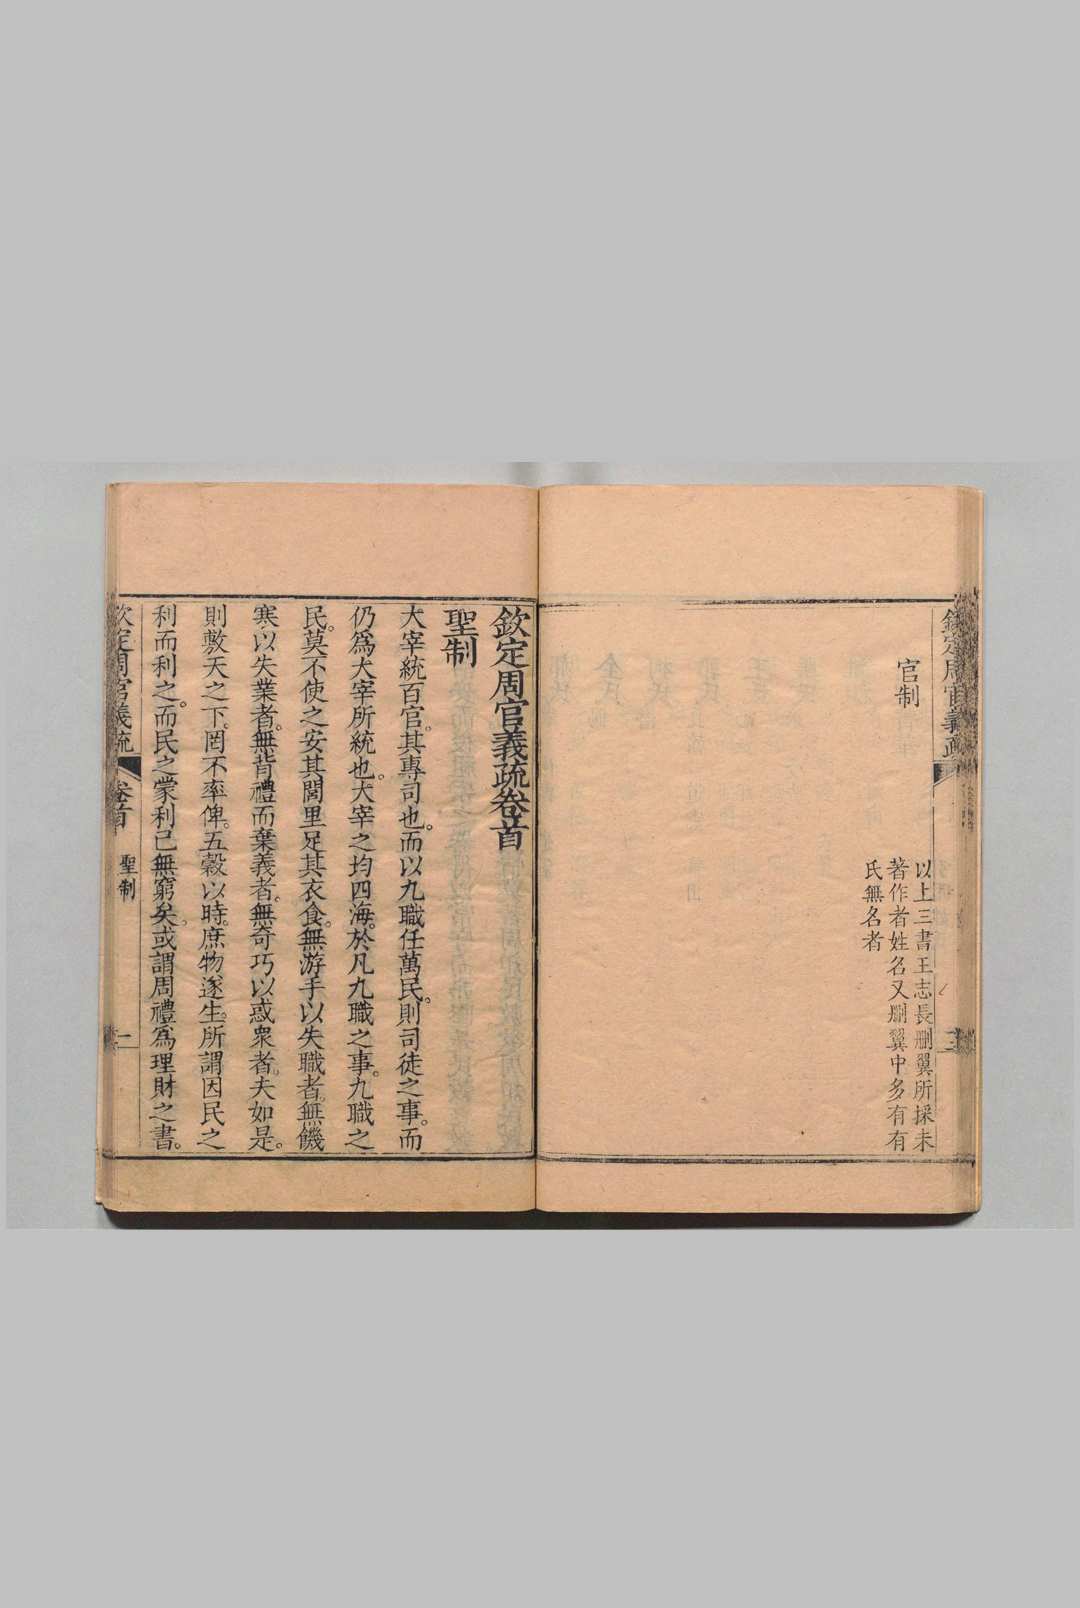 欽定周官義疏
官制
以上三書王志長刪翼所採未
著作者姓名又刪翼中多有有
氏無名者
欽定周官義疏卷首
聖制
大宰統百官。其專司也。而以九職任萬民。則司徒之事。而
仍爲大宰所統也。大宰之均四海。於凡九職之事。九職之
民。莫不使之安其閭里足其衣食。無游手以失職者。無饑
寒以失業者。無背禮而棄義者。無奇巧以惑衆者。夫如是。
則敷天之下。罔不率俾。五穀以時。庶物遂生。所謂因民之
利而利之。而民之蒙利已無窮矣。或謂周禮爲理財之書。
欽定周官義疏 卷首 聖制 一